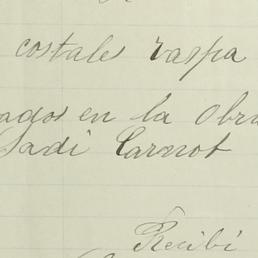 costale raspa
ados en la Obra
Sadi Carnot
Recibí